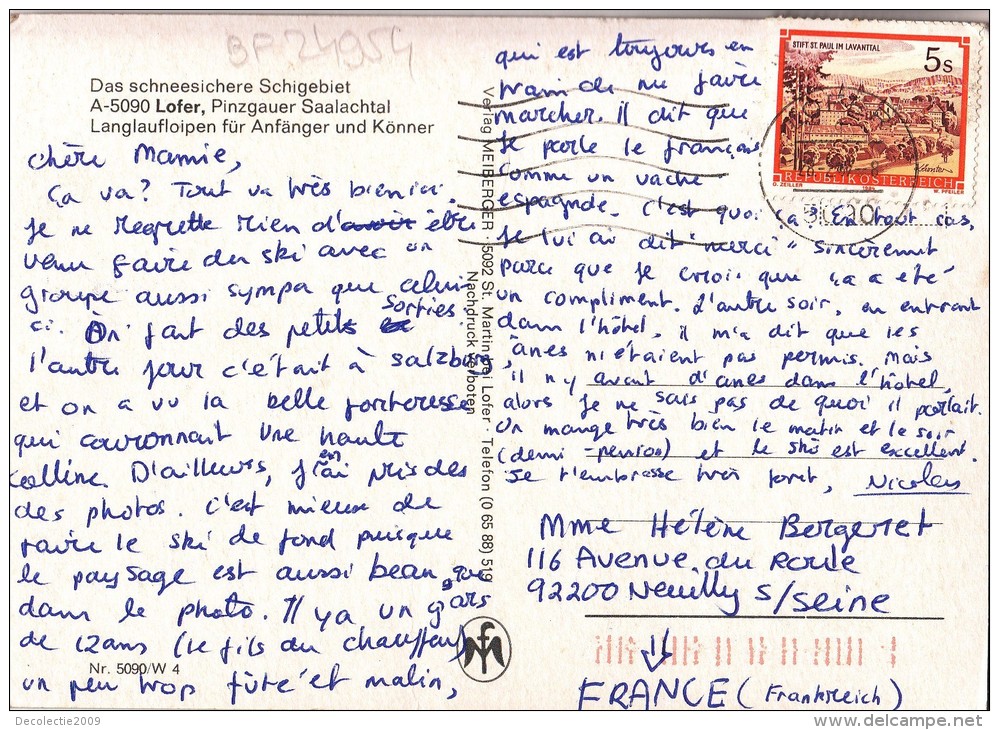 BF 24954
Das schneesichere Schigebiet
A-5090 Lofer, Pinzgauer Saalachtal
Langlaufloipen für Anfänger und Könner
Chère Mamie,
Ça va? Tout va très bien ici.
Je ne regrette rien d'avoir être
venu faire du ski avec un
groupe aussi sympa que celui-
ci. On fait des petits sorties.
l'autre jour c'était à Salzburg
et on a vu la belle forteresse
qui couronnait une haute
colline. D'ailleurs, j'en ai pris des
des photos. C'est mieux de
faire le ski de fond puisque
le paysage est aussi beau que
dans le photo. Il y a un gars
de 12 ans (le fils du chauffeur)
un peu trop fûté et malin,
Nr. 5090/W 4
Verlag MEIBERGER - 5092 St. Martin bei Lofer - Telefon (0 65 88) 519
Nachdruck verboten
qui est toujours en
train de me faire
marcher. Il dit que
je parle le français
comme un vache
espagnole. C'est quoi ça? En tout cas,
Je lui ai dit "merci" sincèrement
parce que je crois que ça a été
un compliment. L'autre soir, en entrant
dans l'hôtel, il m'a dit que les
ânes n'étaient pas permis. Mais
il n'y avait d'ânes dans l'hôtel,
alors je ne sais pas de quoi il parlait.
On mange très bien le matin et le soir
(demi-pension) et le ski est excellent.
Je t'embrasse très fort, Nicolas
STIFT ST. PAUL IM LAVANTTAL
5s
REPUBLIK ÖSTERREICH
O. ZEILLER
W. PFEILER
Mme Hélène Bergeret
116 Avenue du Roule
92200 Neuilly s/Seine
FRANCE (Frankreich)
Decolectie2009
www.delcampe.net